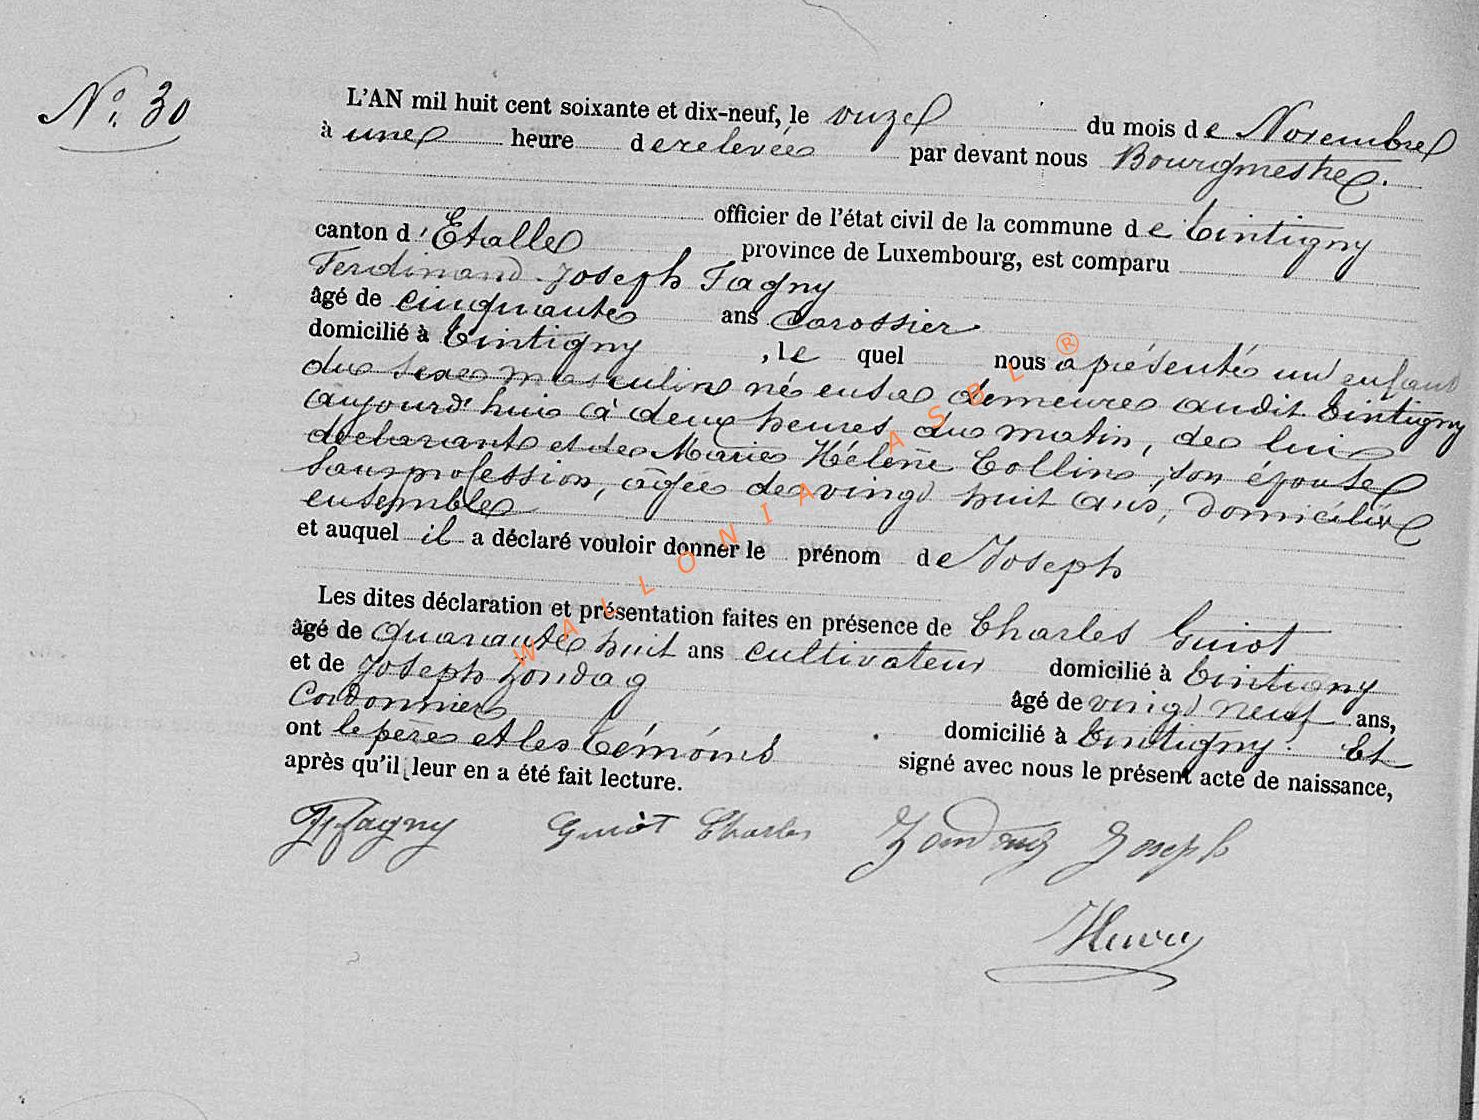 N°. 30
L'AN mil huit cent soixante et dix-neuf, le onze du mois de Novembre
à une heure de relevée par devant nous Bourgmestre.
officier de l'état civil de la commune de Tintigny
canton d'Etalle province de Luxembourg, est comparu
Ferdinand Joseph Fagny
âgé de cinquante ans Carossier
domicilié à Tintigny, le quel nous a présenté un enfant
du sexe masculin né en sa demeure audit Tintigny
aujourd'hui à deux heures du matin, de lui
déclarant et de Marie Hélène Collin, son épouse
sans profession, âgée de vingt huit ans, domiciliée
ensemble
et auquel il a déclaré vouloir donner le prénom de Joseph
Les dites déclaration et présentation faites en présence de Charles Guiot
âgé de quarante huit ans cultivateur domicilié à Tintigny
et de Joseph Zondag âgé de vingt neuf ans,
Cordonnier domicilié à Tintigny. Et
ont le père et les témoins signé avec nous le présent acte de naissance,
après qu'il leur en a été fait lecture.
FJFagny Guiot Charles Zondag Joseph
WALLONIA ASBL ®